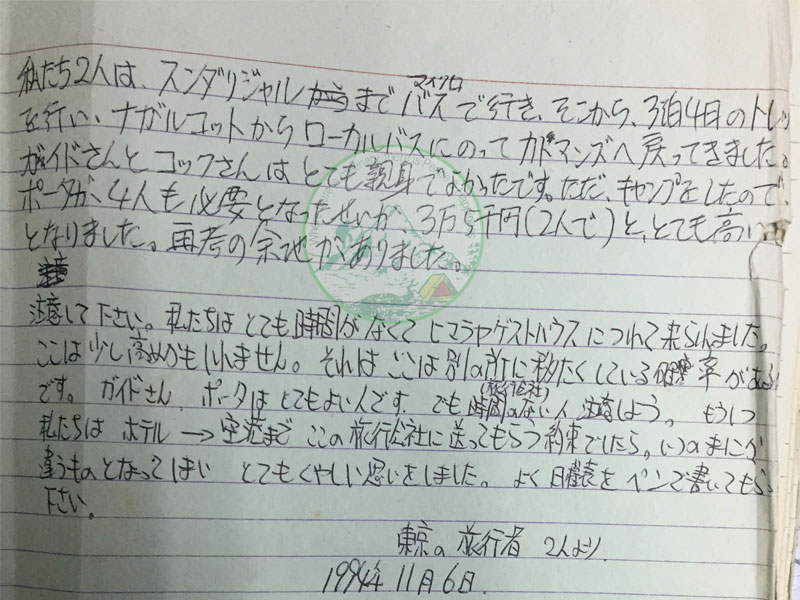 私たち2人は、スンダリジャルまでマイクロバスで行き、そこから、3泊4日のトレッ
を行い、ナガルコットからローカルバスにのってカトマンズへ戻ってきました。
ガイドさんとコックさんはとても親身でよかったです。ただ、キャンプをしたので、
ポーターが、4人も必要となったせいか、3万5千円(2人で)と、とても高い
となりました。再考の余地がありました。
注意して下さい。私たちはとても時間がなくてヒマラヤゲストハウスにつれて来られました。
ここは少し高めかもしれません。それはここは別の所に移たくしている 率がある
です。ガイドさん、ポータはとてもよい人です。でも時間のない人(旅行会社)注意しよう。もう1つ
私たちはホテル→空港までこの旅行会社に送ってもらう約束でしたら、いつのまにか
違うものとなってしまい とてもくやしい思いをしました。よく日程表をペンで書いてもらっ
下さい。
東京の旅行者 2人より.
1994年11月6日.